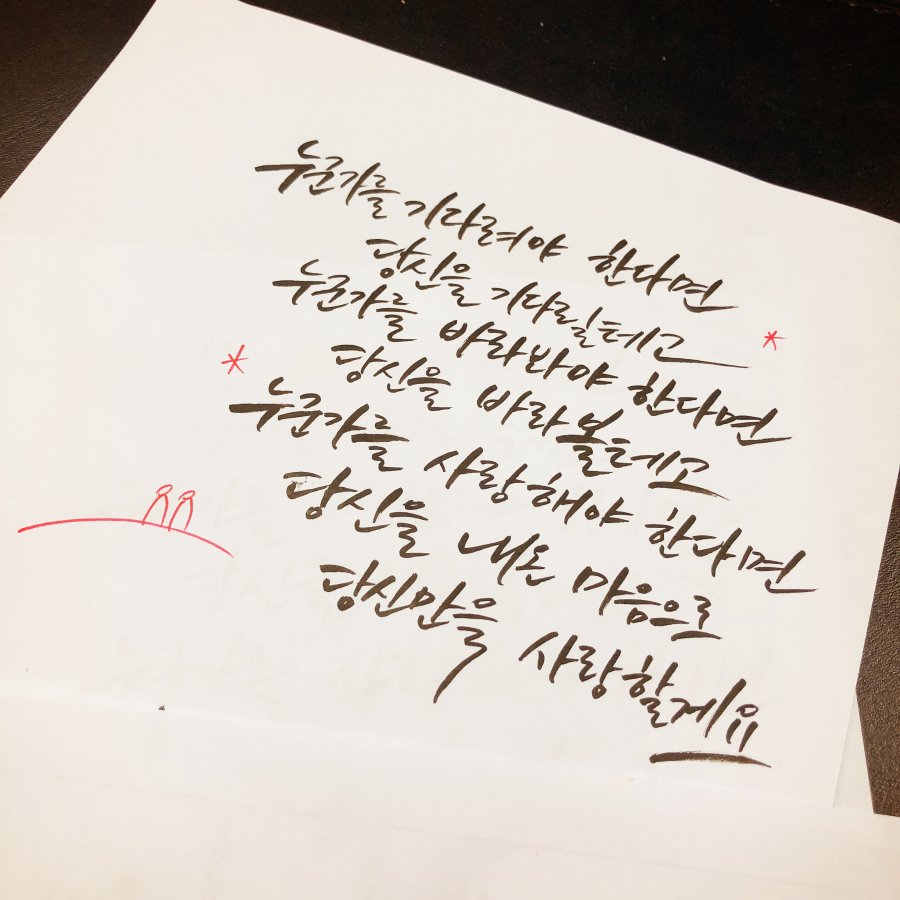 누군가를 기다려야 한다면
당신을 기다릴테고
누군가를 바라봐야 한다면
당신을 바라볼테고
누군가를 사랑해야 한다면
당신을 내온 마음으로
당신만을 사랑할게요